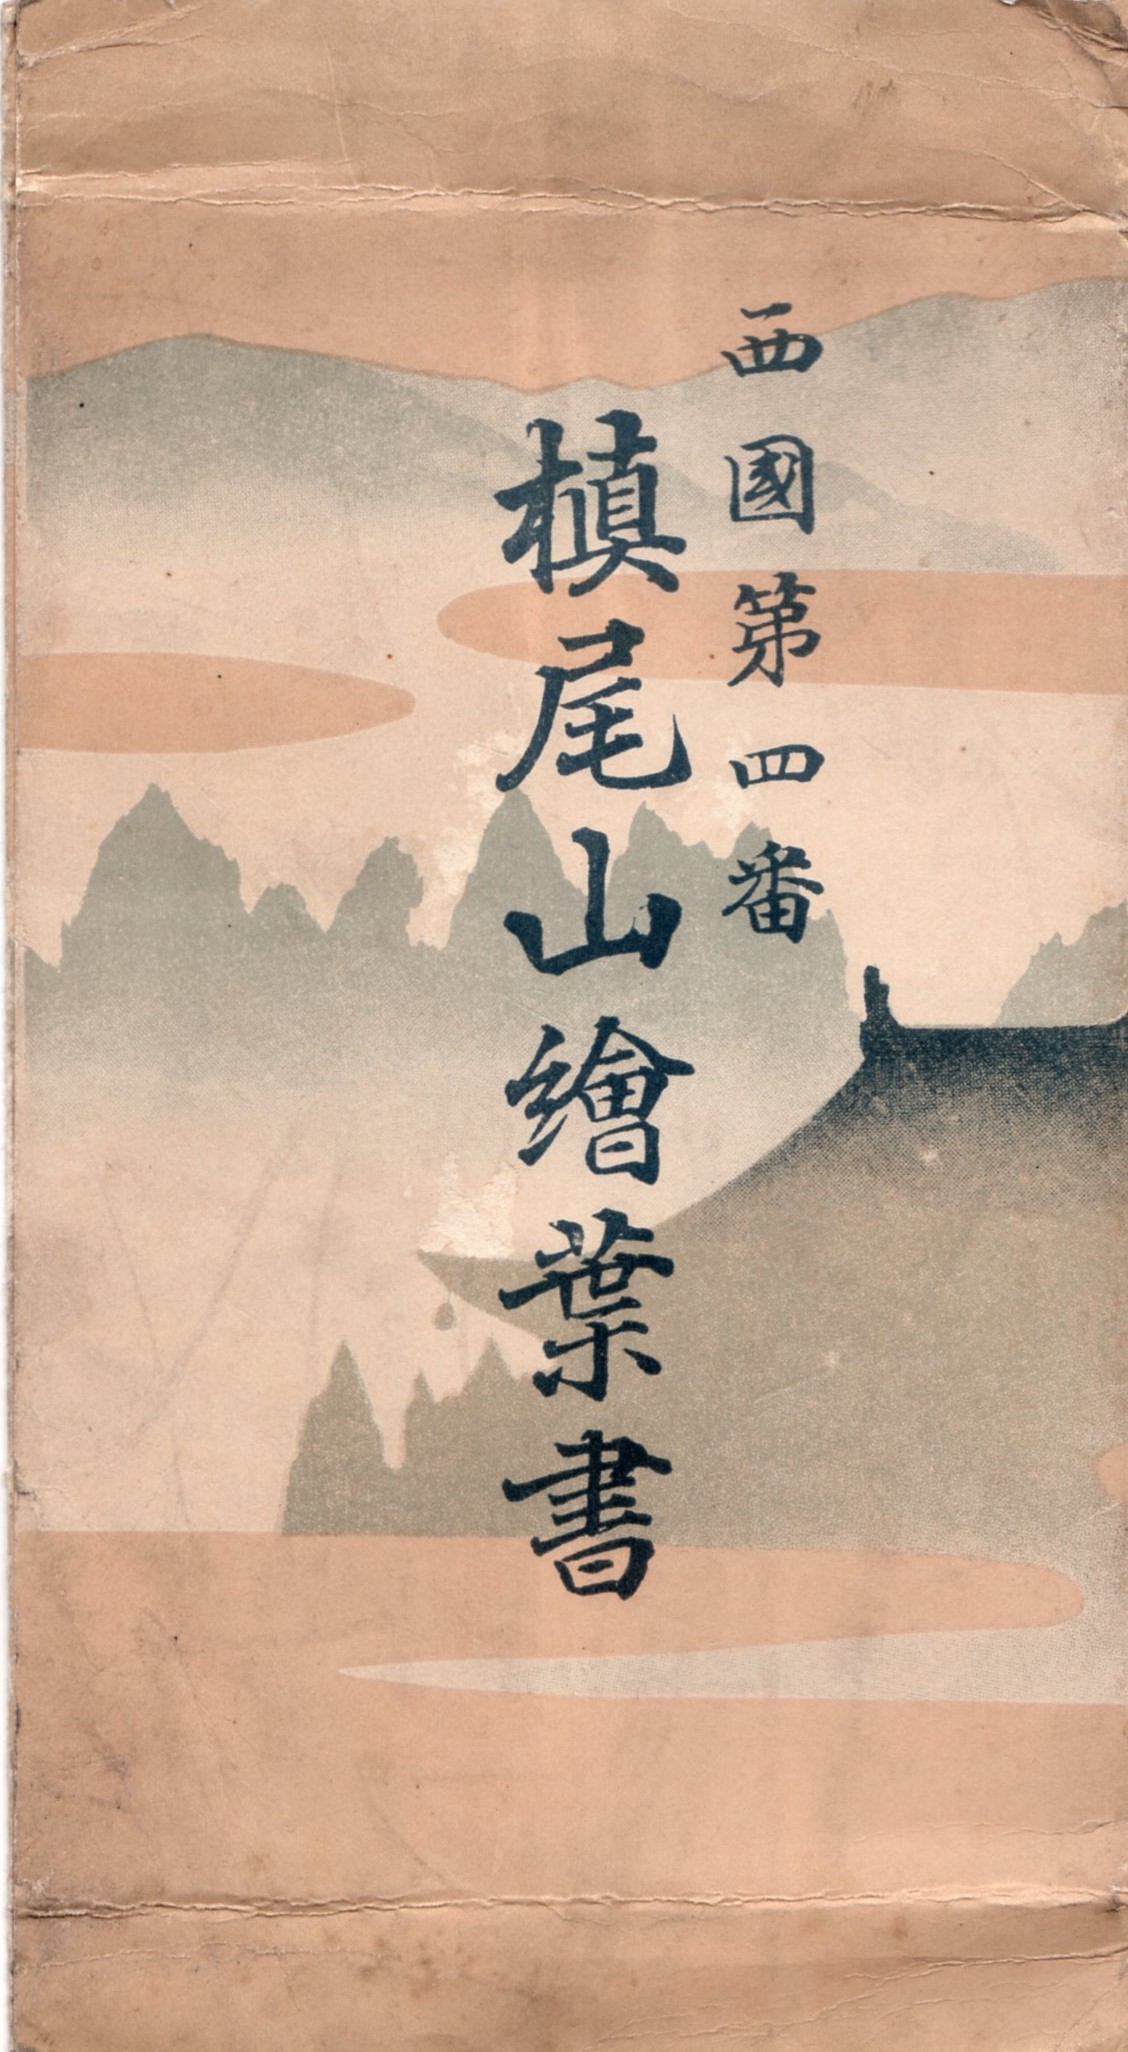 西國第四番
槙尾山繪葉書